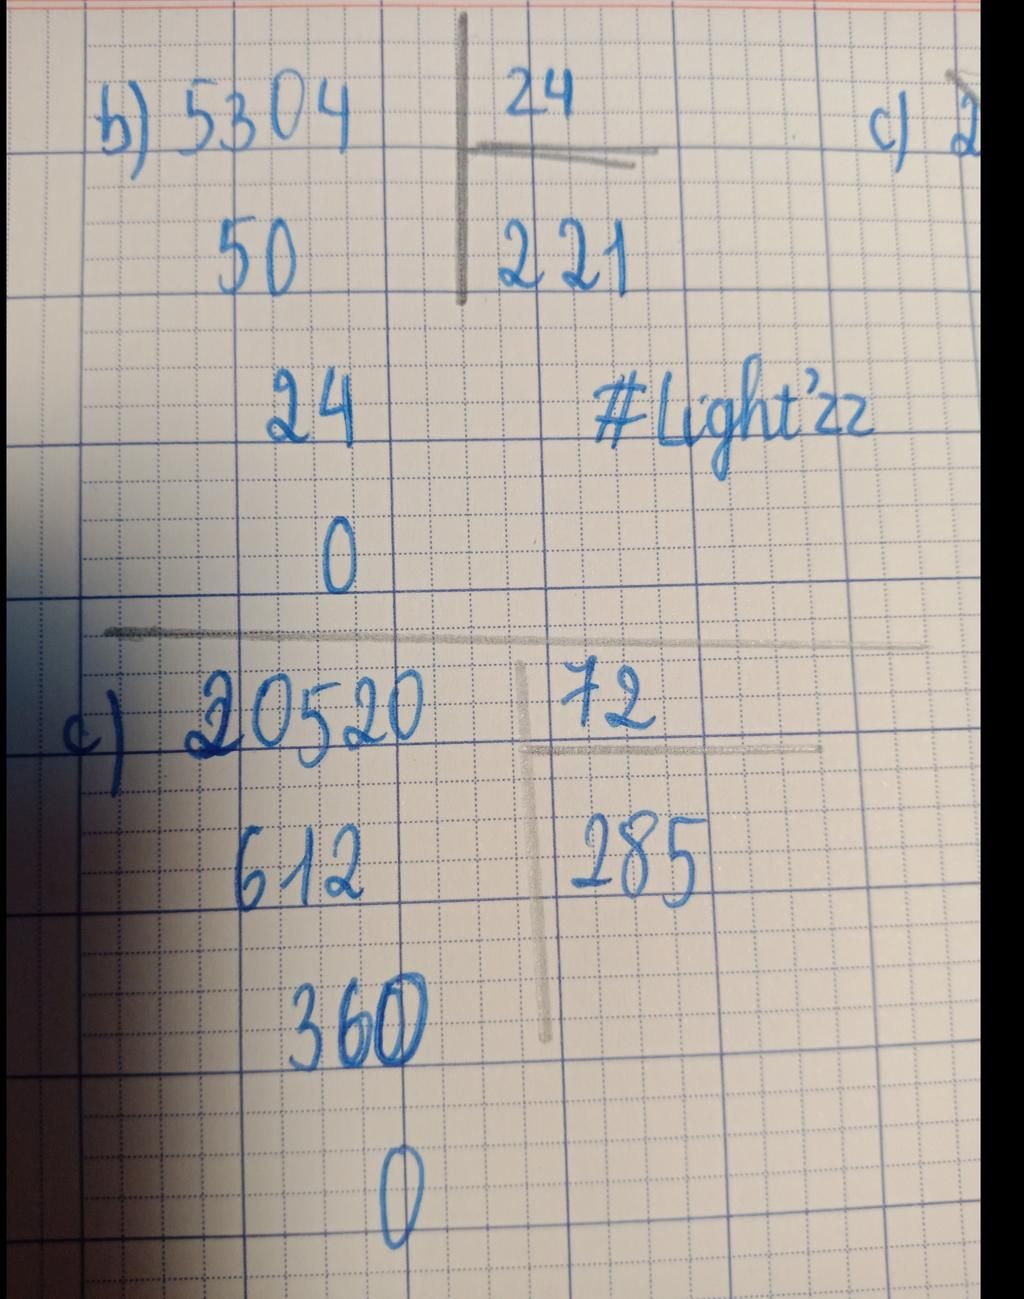 b) 5304 24 c) 2
50 221
24 #Light'zz
0
c) 20520 72
612 285
360
0